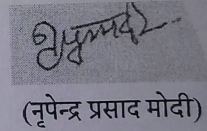 (नृपेन्द्र प्रसाद मोदी)